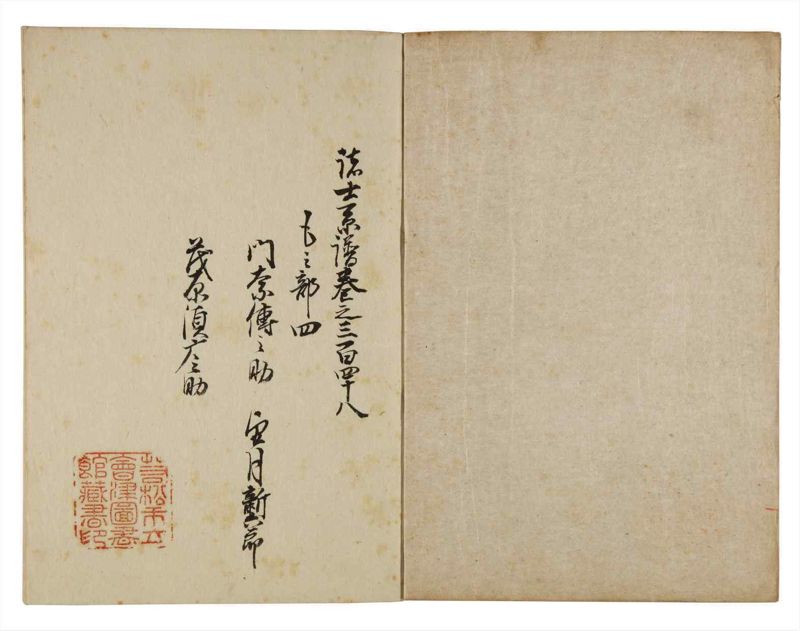 諸士系譜巻之三百四十八
も之部四
門奈傳之助 望月新
茂原 之助
若松市立
會津圖書
館藏書印